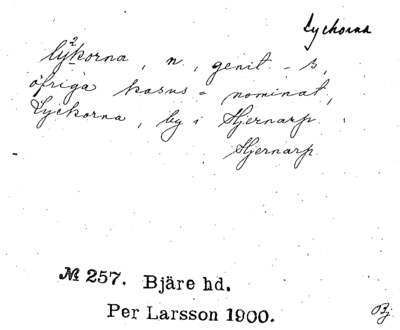 Lyckorna
lýkorna, n., genit. -s,
öfriga kasus = nominat,
Lyckorna, by i Hjernarp.
Hjernarp
№ 257. Bjäre hd.
Per Larsson 1900.
Bj